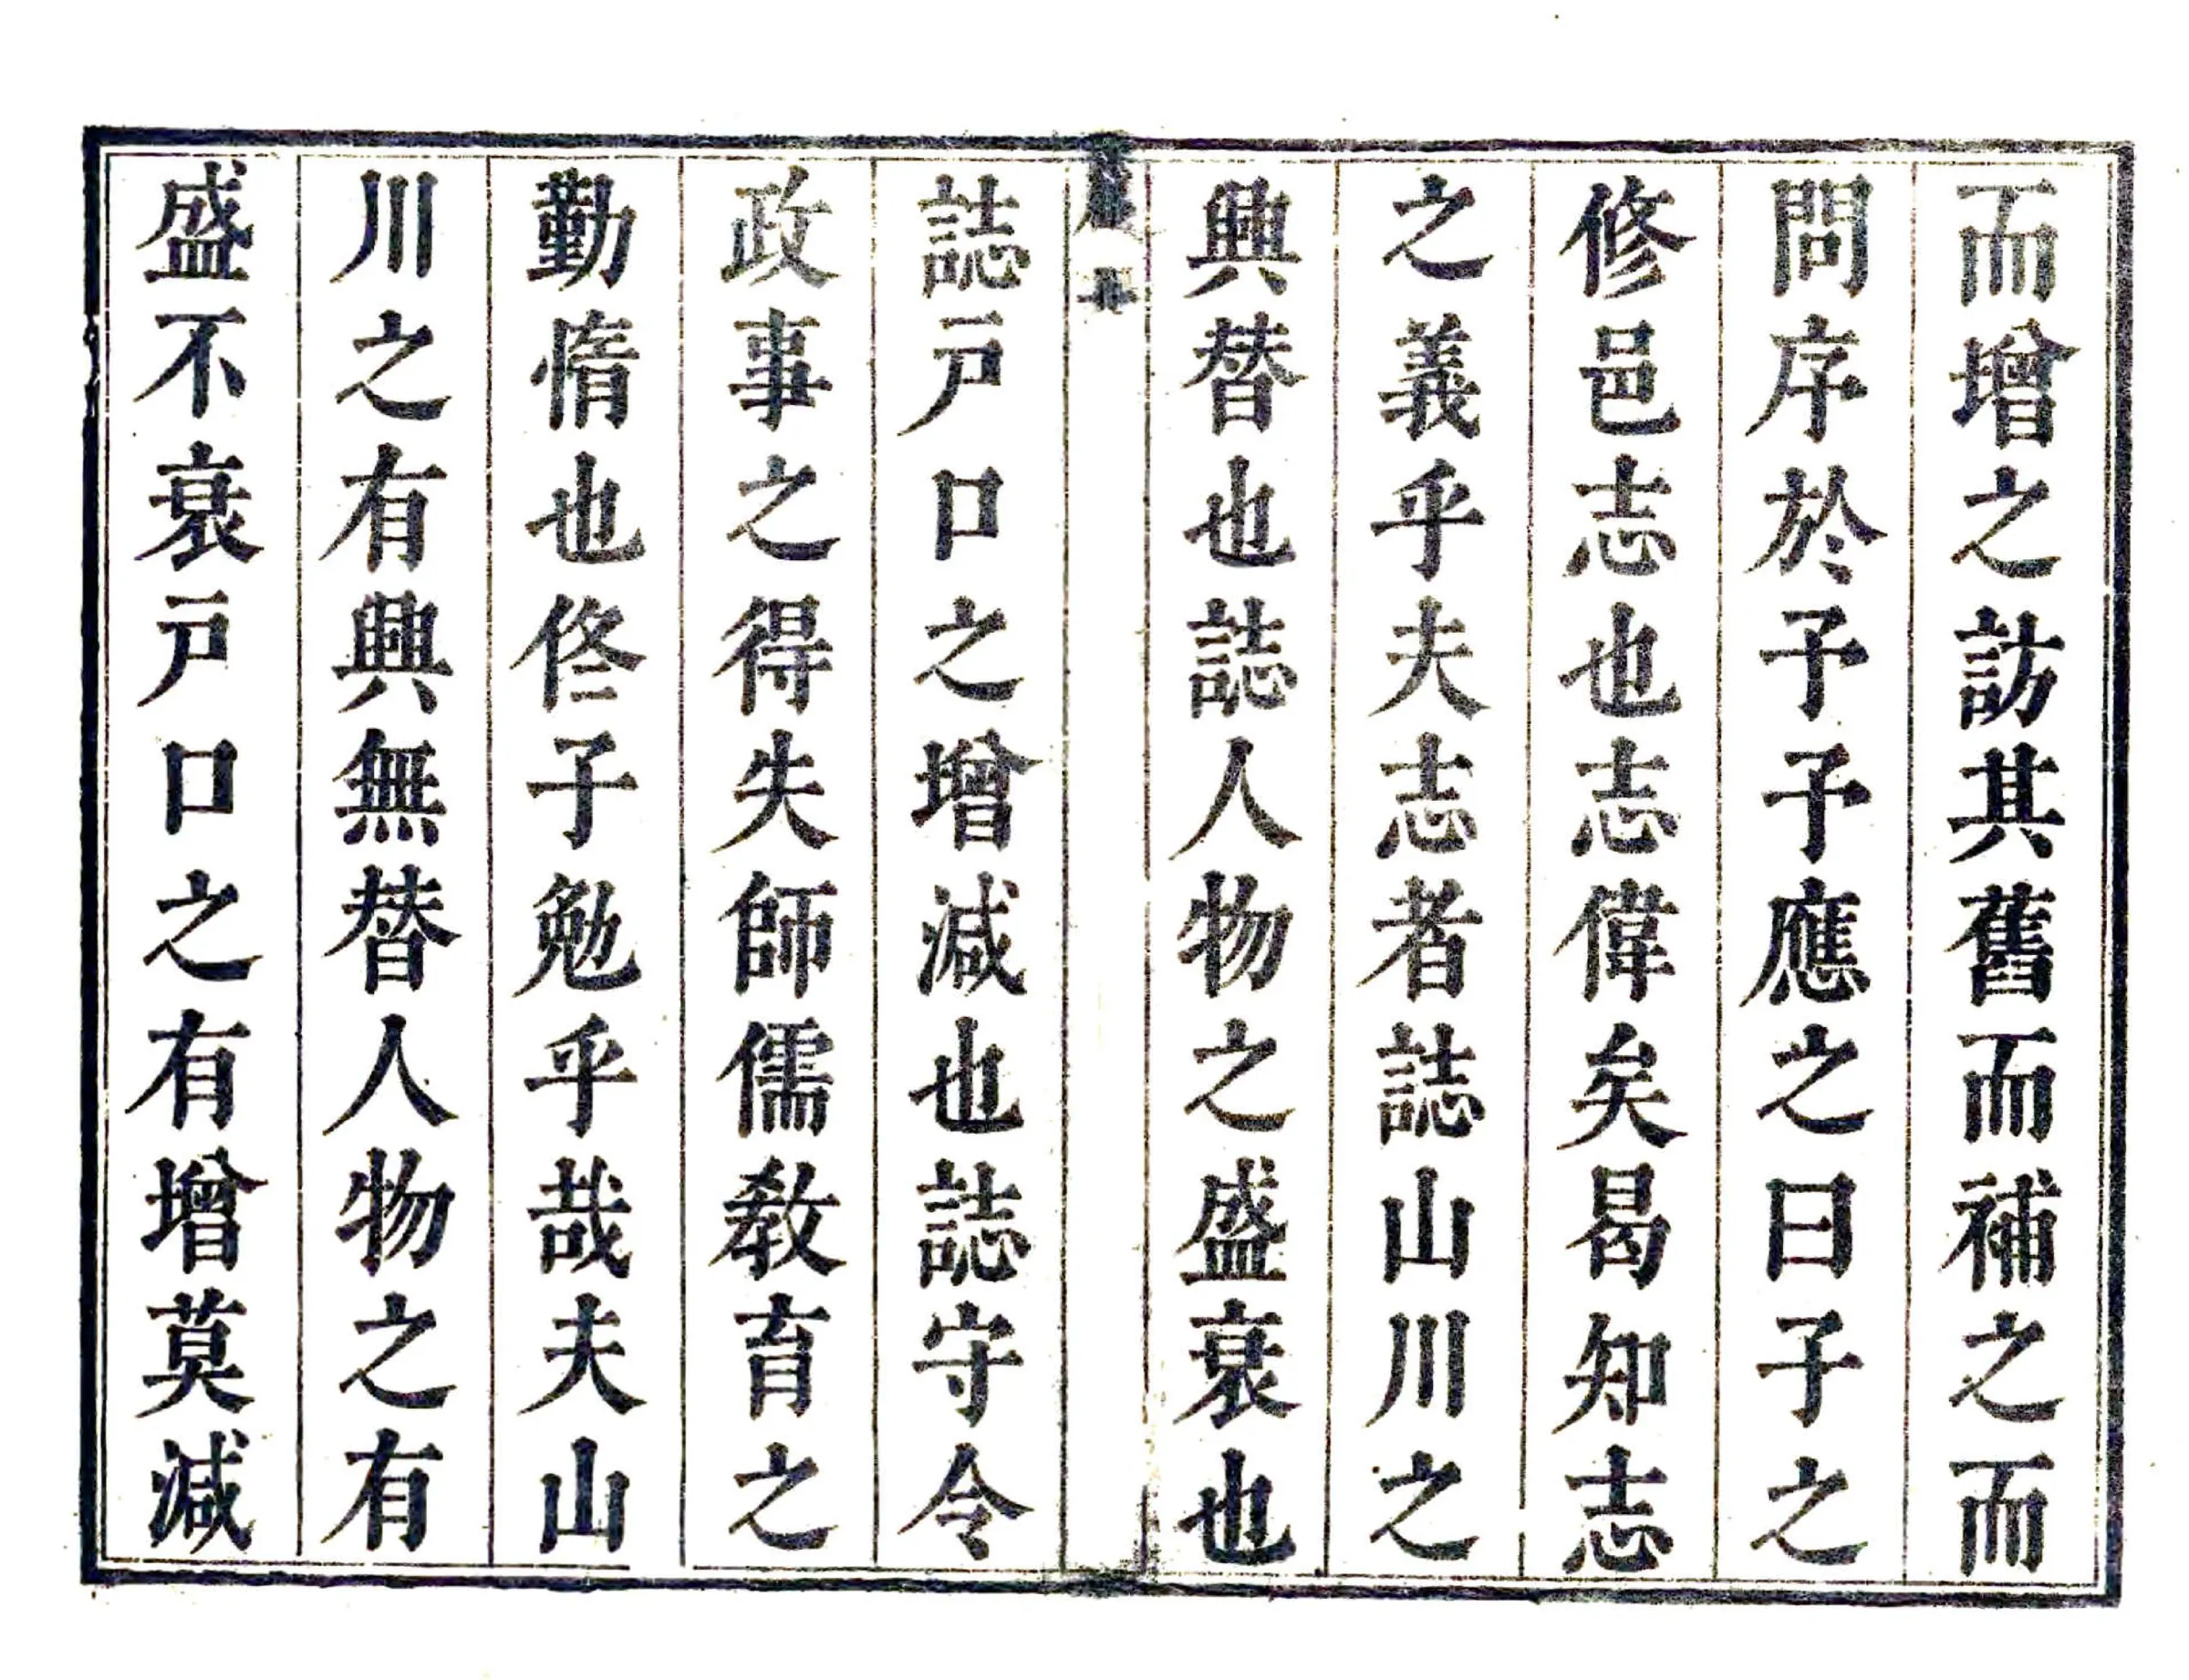 而增之訪其舊而補之而
問序於予予應之曰子之
修邑志也志偉矣曷知志
之義乎夫志者誌山川之
興替也誌人物之盛衰也
誌戶口之增減也誌守令
政事之得失師儒教育之
勤惰也佟子勉乎哉夫山
川之有興無替人物之有
盛不衰戶口之有增莫減